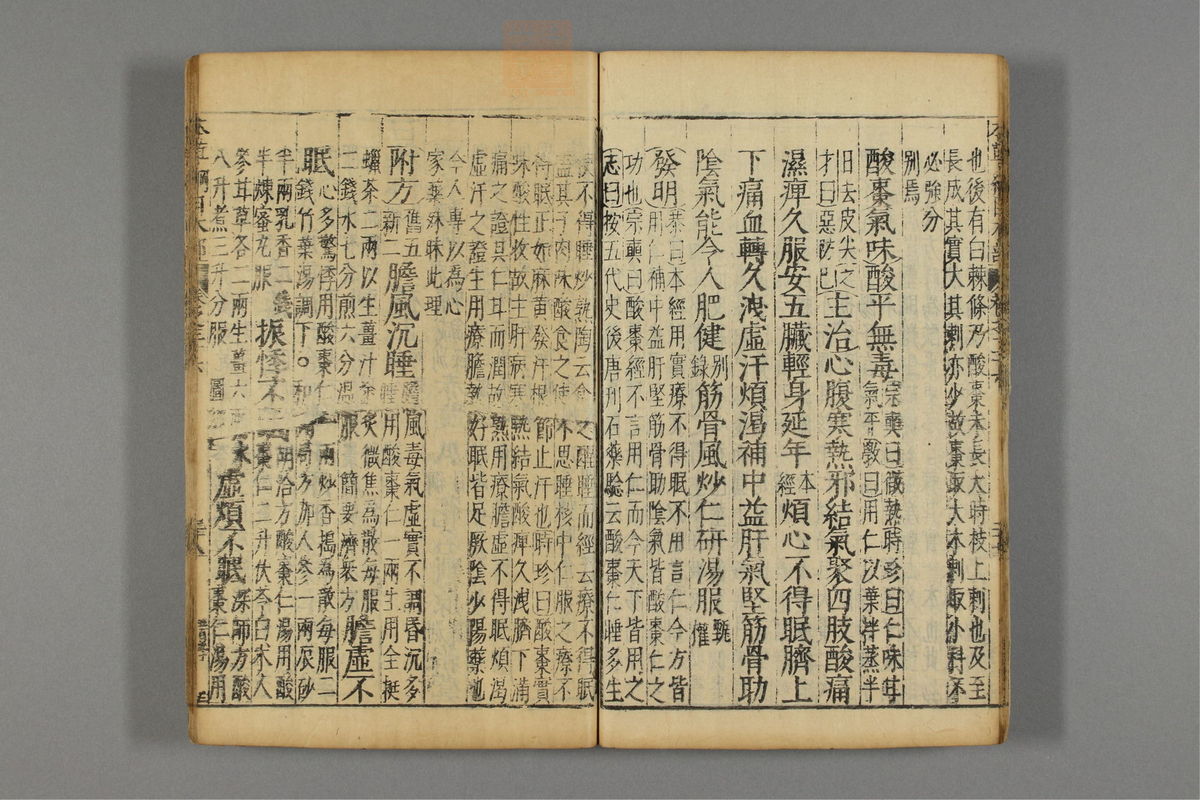 也後有白棘條乃酸棗未長大時枝上刺也及至
長成其實大其刺亦少故棗取大木刺取小科不
必強分
別焉
酸棗氣味酸平無毒宗奭曰微熱時珍曰仁味甘
氣平斆曰用仁以葉拌蒸半
日去皮尖之
才曰惡防己主治心腹寒熱邪結氣聚四肢酸痛
濕痺久服安五臟輕身延年本
經煩心不得眠臍上
下痛血轉久洩虛汗煩渴補中益肝氣堅筋骨助
陰氣能令人肥健別
錄筋骨風炒仁研湯服甄
權
發明恭曰本經用實療不得眠不用言仁今方皆
用仁補中益肝堅筋骨助陰氣皆酸棗仁之
功也宗奭曰酸棗經不言用仁而今天下皆用之
志曰按五代史後唐刊石藥驗云酸棗仁睡多生
使不得睡炒熟陶云食之醒睡而經云療不得眠
蓋其子肉味酸食之使不思睡核中仁服之療不
得眠正如麻黃發汗根節止汗也時珍曰酸棗實
味酸性收故主肝病寒熱結氣酸痺久洩臍下滿
痛之證其仁甘而潤故熟用療膽虛不得眠煩渴
虛汗之證生用療膽熱好眠皆足厥陰少陽藥也
今人專以為心
家藥殊昧此理
附方舊五
新二膽風沉睡膽風毒氣虛實不調昏沉多
睡用酸棗仁一兩生用全挺
蠟茶二兩以生薑汁塗炙微焦為散每服
二錢水七分煎六分溫服簡要濟衆方膽虛不
眠心多驚悸用酸棗仁一兩炒香搗為散每服二
錢竹葉湯調下○和劑局方加人參一兩辰砂
半兩乳香二錢
半煉蜜丸服振悸不眠胡洽方酸棗仁湯用酸
棗仁二升茯苓白朮人
參甘草各二兩生薑六兩水
八升煮三升分服圖
虛煩不眠深師方酸
棗仁湯用